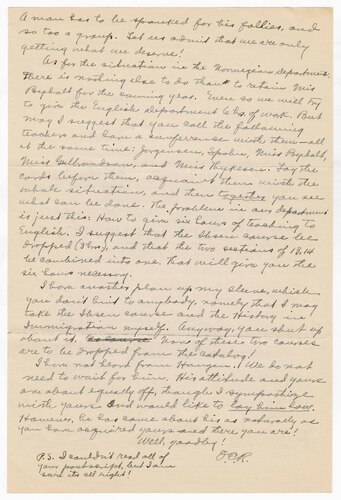 A man has to be spanked for his follies, and
so too a group. Let us admit that we are only
getting what we deserve!
As for the situation in the Norwegian department.
There is nothing else to do than to retain Miss
for the coming year. Even so we will try
to give the English Department 6 hrs of work. But
may I suggest that you call the following
teachers and have a conference with them - all
at the same time: Jorgenson, Spohn, Miss
Miss Gulbrandson, and Miss Thykesen. Lay the
cards before them, acquaint them with the
whole situation, and then together you see
what can be done. The problem in our department
is just this: How to give six hours of teaching to
English. I suggest that the Ibsen course be
dropped (3 hrs), and that the two sections of 13,14
be combined into one. That will give you the
six hours necessary.
I have another plan up my sleeve, which
you don't hint to anybody, namely that I may
take the Ibsen course and the History in
Immigration myself. Anyway, you shut up
about it. None of these two courses
are to be dropped from the catalog!
I have not heard from Hansen! We do not
need to wait for him. His attitude and yours
are about equally off, though I sympathize
with yours and would like to lay him low.
However, he has come about his as naturally as
you have acquired yours and there you are!
Well, goodby!
O.E.R.
P.S. I couldn't read all of
your postscript, but I am
sure its all right!